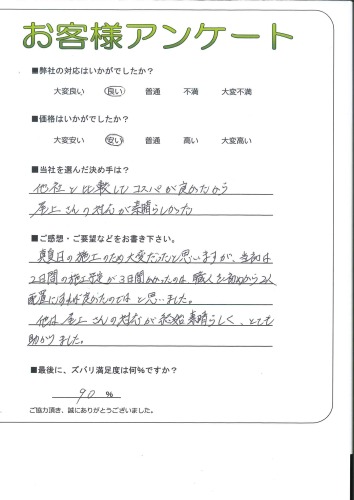 お客様アンケート
■弊社の対応はいかがでしたか？
大変良い 良い 普通 不満 大変不満
■価格はいかがでしたか？
大変安い 安い 普通 高い 大変高い
■当社を選んだ決め手は？
他社と比較してコスパが良かったから
尾上さんの対応が素晴らしかった
■ご感想・ご要望などをお書き下さい。
真夏日の施工のため大変だったと思いますが、当初は
2日間の施工予定が3日間かかったのは職人を初めから2人
配置にすれば良かったのではと思いました。
他は尾上さんの対応が終始素晴らしく、とても
助かりました。
■最後に、ズバリ満足度は何％ですか？
90 ％
ご協力頂き、誠にありがとうございました。